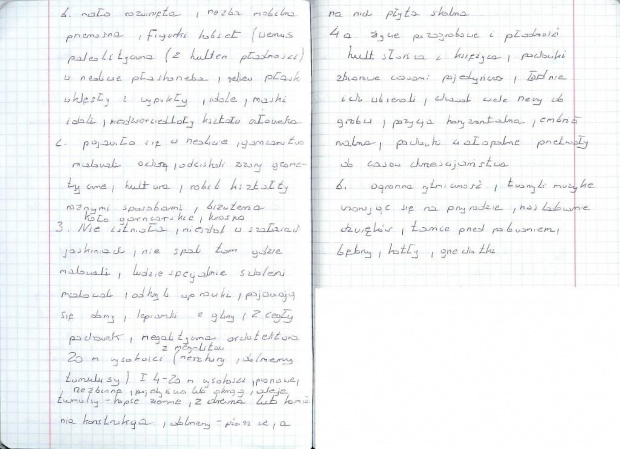 b. mało rozwinięta, rzeźba mobilna
przenośna, figurki kobiet (Wenus
paleolityczna (z kultem płodności)
w neolicie płaskorzeźba, relief płaski
wklęsły i wypukły, idole, maski
idoli, kształty człowieka
c. pojawiła się w neolicie, garncarstwo
malowali ochrą, odciskali wzory geome-
tryczne, kultura, robili kształty
różnymi sposobami, biżuteria
koło garncarskie, krosno
3. Nie istniała, mieszkał w szałasach
jaskiniach, nie spał tam gdzie
malowali, ludzie specjalnie szkoleni
malowali, odkryli uprawę, pojawiają
się domy, lepianki z gliny, z cegły
pochówek, megalityczna architektura
z megalitów
20 m wysokości (menhiry, dolmeny
tumulusy) I 4-20 m wysokości, pionowe,
pojedynczo lub okręgi, aleje
tumulusy - kopce ziemne, z drewna lub kamie
nia konstrukcja, dolmeny - pionowe, a
na nich płyta skalna
4 a życie pozagrobowe i płodności
kult słońca i księżyca, pochówki
zbiorowe czasami pojedyncze, ładnie
ich ubierali, chowali wiele rzeczy do
grobu, pozycja horyzontalna, embrio
nalna, pochówki całopalne przetrwały
do czasów chrześcijaństwa
b. ogromna muzykę
wzorując się na przyrodzie, naśladowanie
dźwięków, tańce przed polowaniem,
bębny, kotły, grzechotki